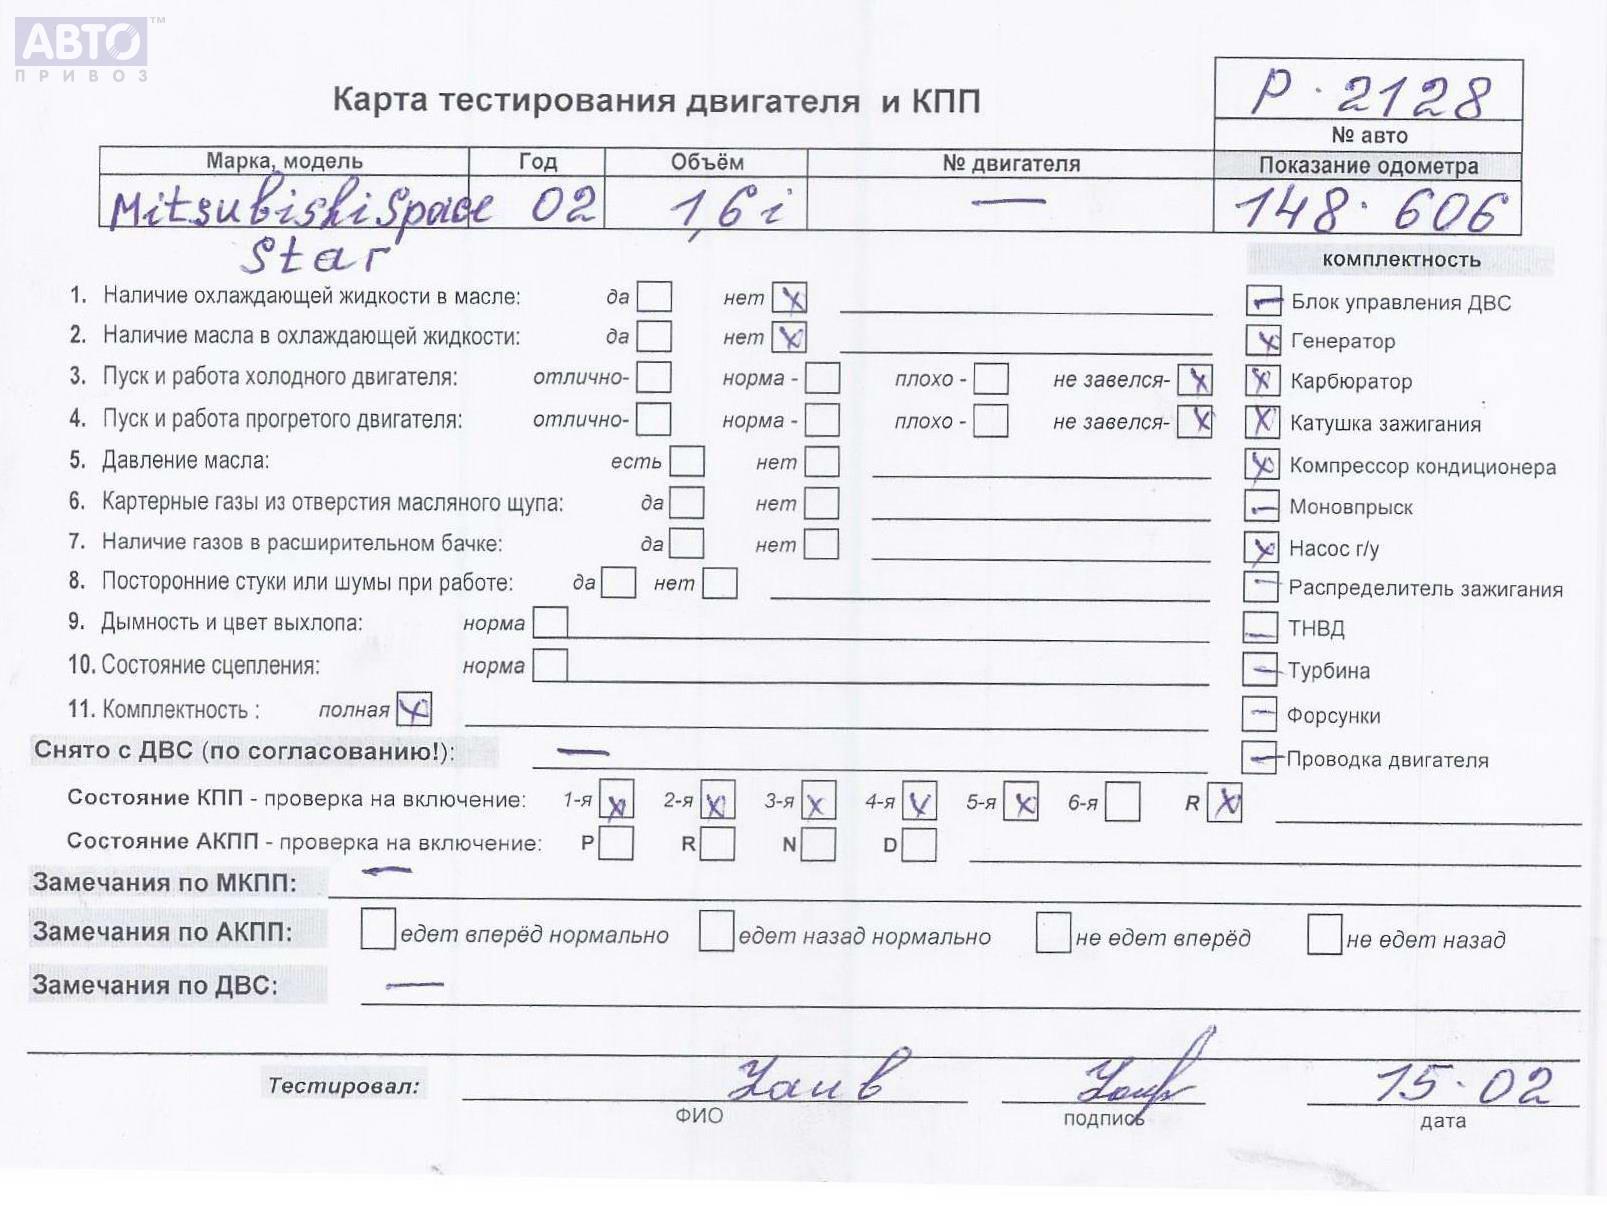 АВТО™
ПРИВОЗ
Карта тестирования двигателя и КПП
Р·2128
№ авто
Марка, модель Год Объём № двигателя Показание одометра
Mitsubishi Space 02 1,6i — 148·606
Star
комплектность
1. Наличие охлаждающей жидкости в масле: да нет X
Блок управления ДВС
2. Наличие масла в охлаждающей жидкости: да нет X
X Генератор
3. Пуск и работа холодного двигателя: отлично- норма - плохо - не завелся- X
X Карбюратор
4. Пуск и работа прогретого двигателя: отлично- норма - плохо - не завелся- X
X Катушка зажигания
5. Давление масла: есть нет
X Компрессор кондиционера
6. Картерные газы из отверстия масляного щупа: да нет
— Моновпрыск
7. Наличие газов в расширительном бачке: да нет
X Насос г/у
8. Посторонние стуки или шумы при работе: да нет
— Распределитель зажигания
9. Дымность и цвет выхлопа: норма
— ТНВД
10. Состояние сцепления: норма
— Турбина
11. Комплектность : полная X
— Форсунки
Снято с ДВС (по согласованию!): —
— Проводка двигателя
Состояние КПП - проверка на включение: 1-я X 2-я X 3-я X 4-я X 5-я X 6-я R X
Состояние АКПП - проверка на включение: P R N D
Замечания по МКПП: —
Замечания по АКПП: едет вперёд нормально едет назад нормально не едет вперёд не едет назад
Замечания по ДВС: —
Тестировал: 15·02
ФИО подпись дата